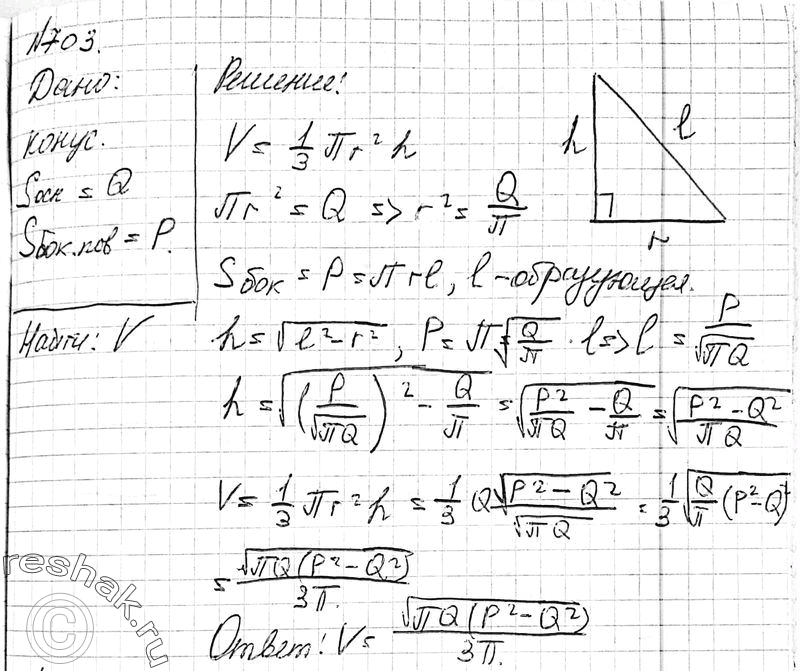 №703.
Дано:
конус.
Sосн = Q
Sбок.пов = P.
Найти: V
Решение:
V = 1/3 πr² h
πr² = Q => r² = Q/π
Sбок = P = πrl, l – образующая.
h = √(l² – r²), P = π√(Q/π) · l => l = P/√(πQ)
h = √((P/√(πQ))² – Q/π) = √(P²/√πQ – Q/π) = √((P² – Q²)/πQ)
V = 1/3 πr² h = 1/3 Q √(P² – Q²)/√(πQ) = 1/3 √(Q/π (P² – Q²))
= √(πQ(P² – Q²))/3π.
Ответ: V = √(πQ(P² – Q²))/3π.
h
l
r
reshak.ru
©